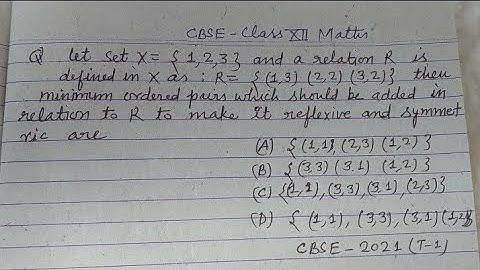 CBSE - Class XII Maths
Q let set X = {1,2,3} and a relation R is
defined in X as : R = {(1,3) (2,2) (3,2)} then
minimum ordered pairs which should be added in
relation to R to make it reflexive and symmet
ric are
(A) {(1,1), (2,3) (1,2)}
(B) {(3,3) (3,1) (1,2)}
(C) {(1,1), (3,3), (3,1), (2,3)}
(D) {(1,1), (3,3), (3,1) (1,2)}
CBSE - 2021 (T-1)